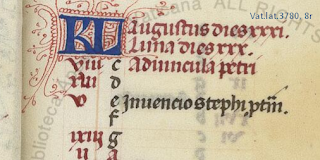 Vat.lat.3780, 8r
KL Augustus dies xxxi.
Luna dies xxx.
viii c Aduincula petri
xvi d
v e Inuencio stephi ptm̄.
f
xiii g
ii a